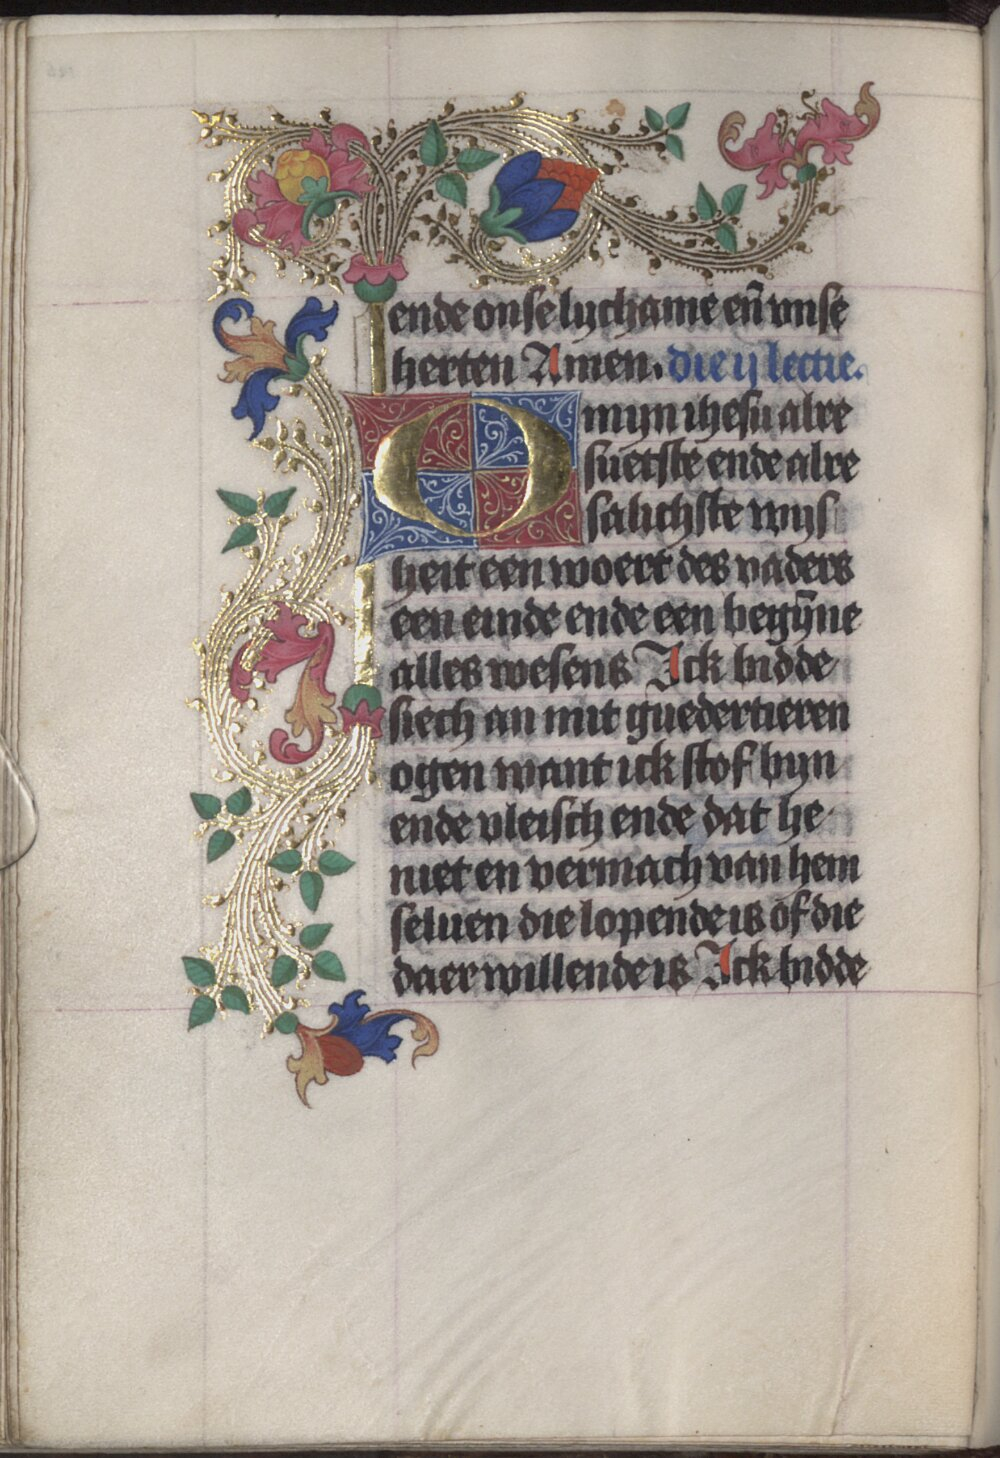 ende onse lychame en̄ vnse
herten Amen. die ij lectie.
O mijn ihesu alre
suetste ende alre
salichste wijs
heit een woert des vaders
een einde ende een begȳne
alles wesens Ick bidde
siech an mit guedertieren
ogen want ick stof byn
ende vleisch ende dat he
niet en vermach van hem
seluen die lopende is of die
daer willende is Ick bidde